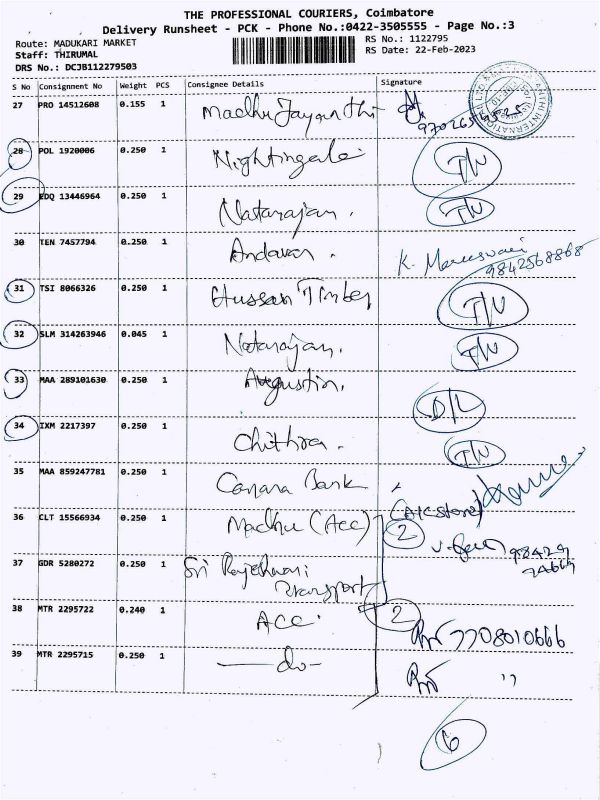 THE PROFESSIONAL COURIERS, Coimbatore
Delivery Runsheet - PCK - Phone No.:0422-3505555 - Page No.:3
Route: MADUKARI MARKET RS No.: 1122795
Staff: THIRUMAL RS Date: 22-Feb-2023
DRS No.: DCJB112279503
S No Consignment No Weight PCS Consignee Details Signature
27 PRO 14512608 0.155 1 Madhu Jayanthi
28 POL 1920006 0.250 1 Nightingale T/U
29 EDQ 13446964 0.250 1 Natarajan. T/U
30 TEN 7457794 0.250 1 Andavar. K. Mareeswari
9842568868
31 TSI 8066326 0.250 1 Hussan Timber T/U
32 SLM 314263946 0.045 1 Natarajan. T/U
33 MAA 289101630 0.250 1 Augustin. D/L
34 IXM 2217397 0.250 1 Chithra. T/U
35 MAA 859247781 0.250 1 Canara Bank
36 CLT 15566934 0.250 1 Madhu (Acc) 2
37 GDR 5280272 0.250 1 Sri Rajeshwari
Transport
38 MTR 2295722 0.240 1 ACC. 2 7708010666
39 MTR 2295715 0.250 1 —do— "
6